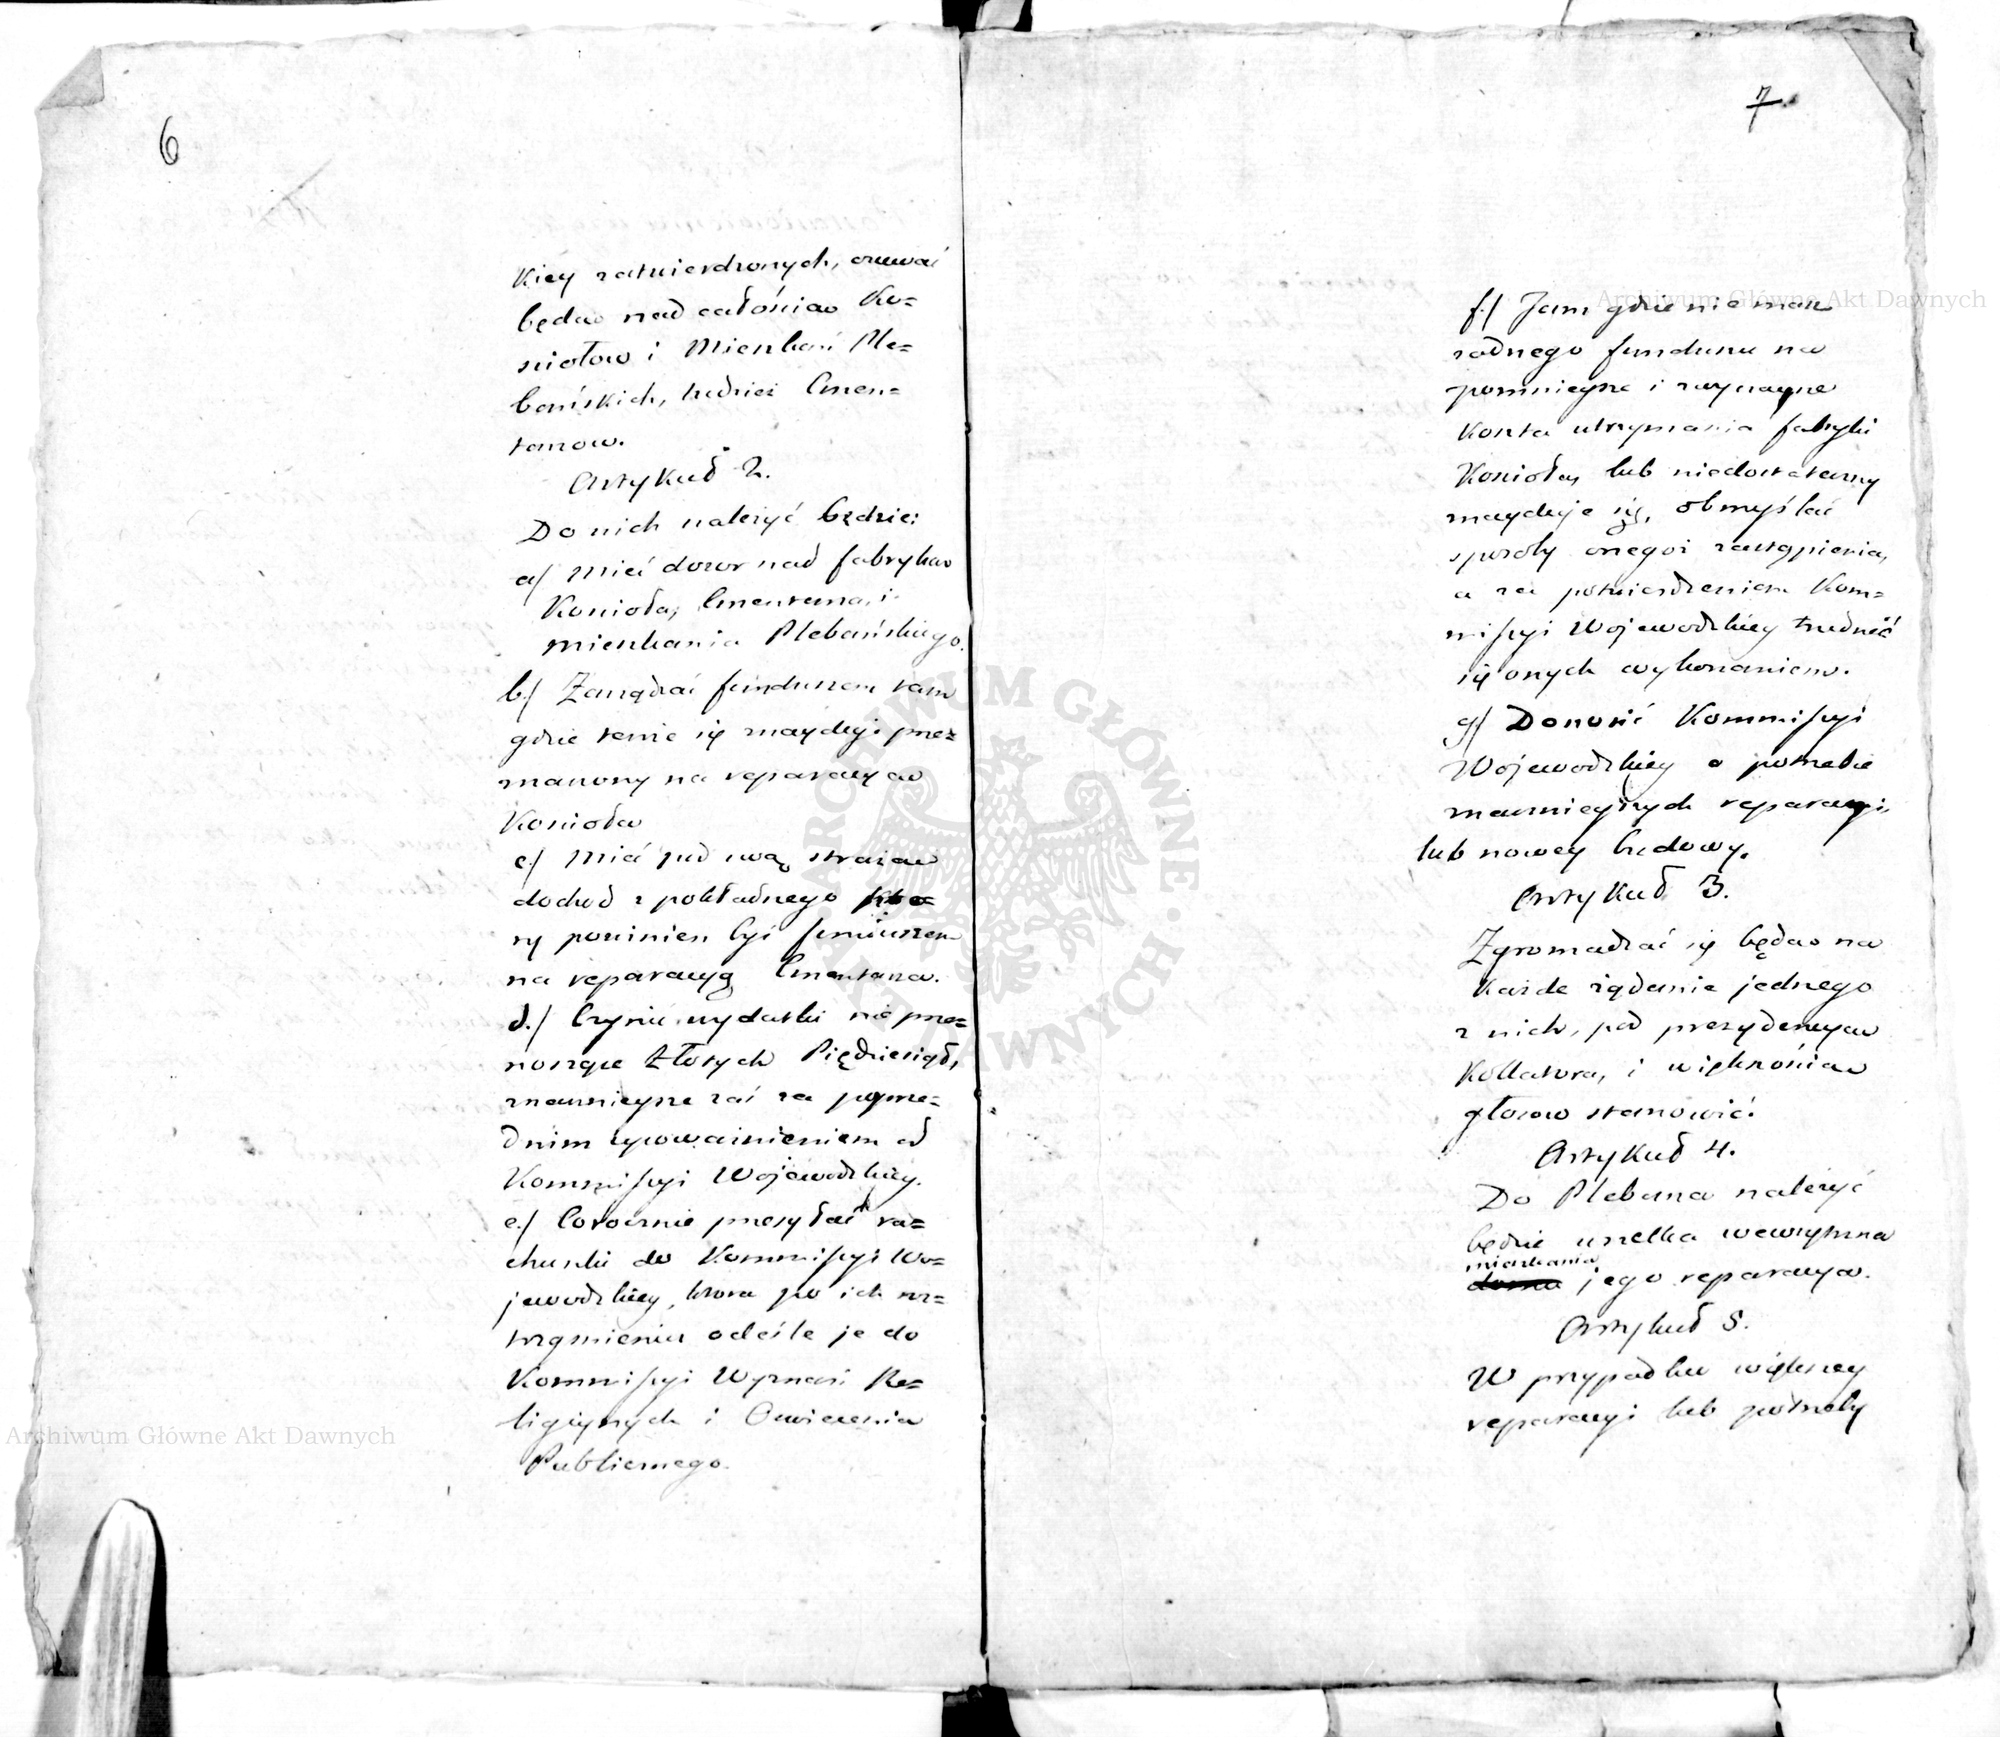 6
kiey zatwierdzonych, czuwać
będą nad całością Ko=
ściołow i Mieszkań Ple=
bańskich, tudzież Cmen=
tarzow.
Artykuł 2.
Do nich należyć będzie:
a/ Mieć dozor nad fabryką
Kościoła, Cmentarza, i
mieszkania Plebańskiego.
b/ Zarządzać funduszem tam
gdzie tenże się znayduje prze=
znaczony na reparacyą
Kościoła
c/ Mieć pod swą strażą
dochod z pokładnego kto=
ry powinien być funduszem
na reparacyą Cmentarza.
d./ Czynić wydatki nie prze=
noszące Złotych Pięćdziesiąt,
znacznieysze zaś za poprze=
dnim upoważnieniem od
Kommissyi Wojewodzkiey.
e./ Corocznie przesyłać ra=
chunki do Kommissyi Wo=
jewodzkiey, ktora po ich roz=
trząśnieniu odeśle je do
Kommissyi Wyznań Re=
ligiynych i Oświecenia
Publicznego.
7
f/ Tam gdzie nie masz
żadnego funduszu na
pomnieysze i zwyczayne
Koszta utrzymania fabryki
Kościoła, lub niedostateczny
znayduje się, obmyślać
sposoby onegoż zastąpienia,
a za potwierdzeniem Kom=
missyi Wojewodzkiey trudnić
się onych wykonaniem.
g/ Donosić Kommissyi
Wojewodzkiey o potrzebie
znacznieyszych reparacyi,
lub nowey budowy.
Artykuł 3.
Zgromadzać się będą na
każde żądanie jednego
z nich, pod prezydencyą
Kollatora, i większością
głosow stanowić.
Artykuł 4.
Do Plebana należyć
będzie wszelka wewnętrzna
mieszkania
domu jego reparacya.
Artykuł 5.
W przypadku większey
reparacyi lub potrzeby
Archiwum Główne Akt Dawnych
Archiwum Główne Akt Dawnych
ARCHIWUM GŁÓWNE AKT DAWNYCH